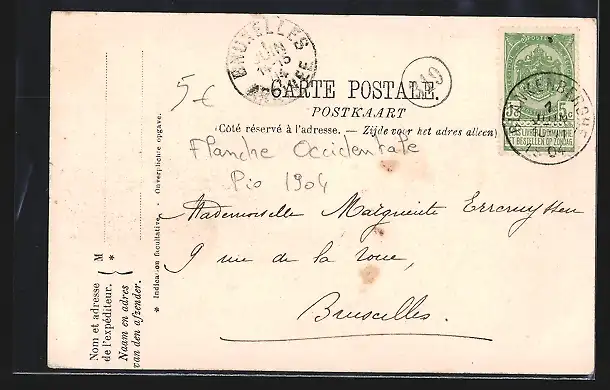 BRUXELLES
1
JUIN
14-15
ARRIVEE
5 €
CARTE POSTALE.
POSTKAART
(Côté réservé à l'adresse. — Zijde voor het adres alleen)
POSTES
5c 5c
NE PAS LIVRER LE DIMANCHE
NIET BESTELLEN OP ZONDAG
1
JUIN
04
Flanche Occidentale
Pio 1904
Mademoiselle Marguerite
9 rue de la roue,
Bruxelles.
* Indication facultative. - Onverplichte opgave.
M
*
Nom et adresse
de l'expéditeur.
Naam en adres
van den afzender.